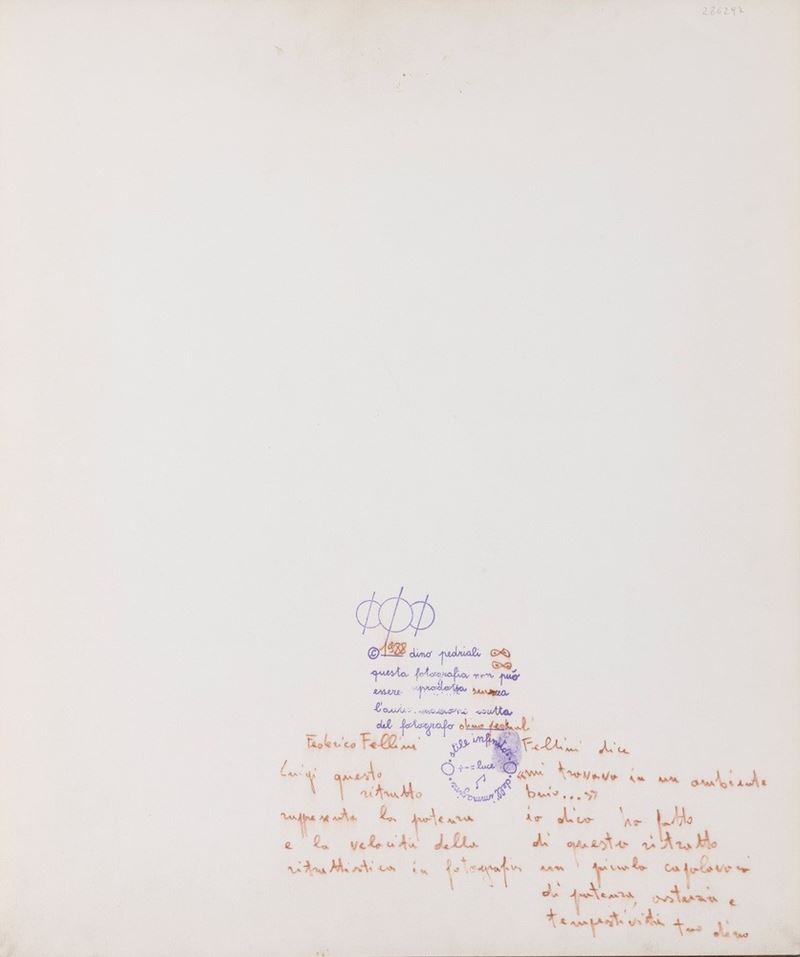 286297
© 1988 dino pedriali
questa fotografia non può
essere riprodotta senza
l'autorizzazione scritta
del fotografo
stile infinito
dell'immagine
luce
Federico Fellini
Luigi questo
ritratto
rappresenta la potenza
e la velocità della
ritrattistica in fotografia
Fellini dice
«mi trovavo in un ambiente
buio...»
io dico ho fatto
di questo ritratto
un piccolo capolavoro
di potenza, e
tempestività tuo dino